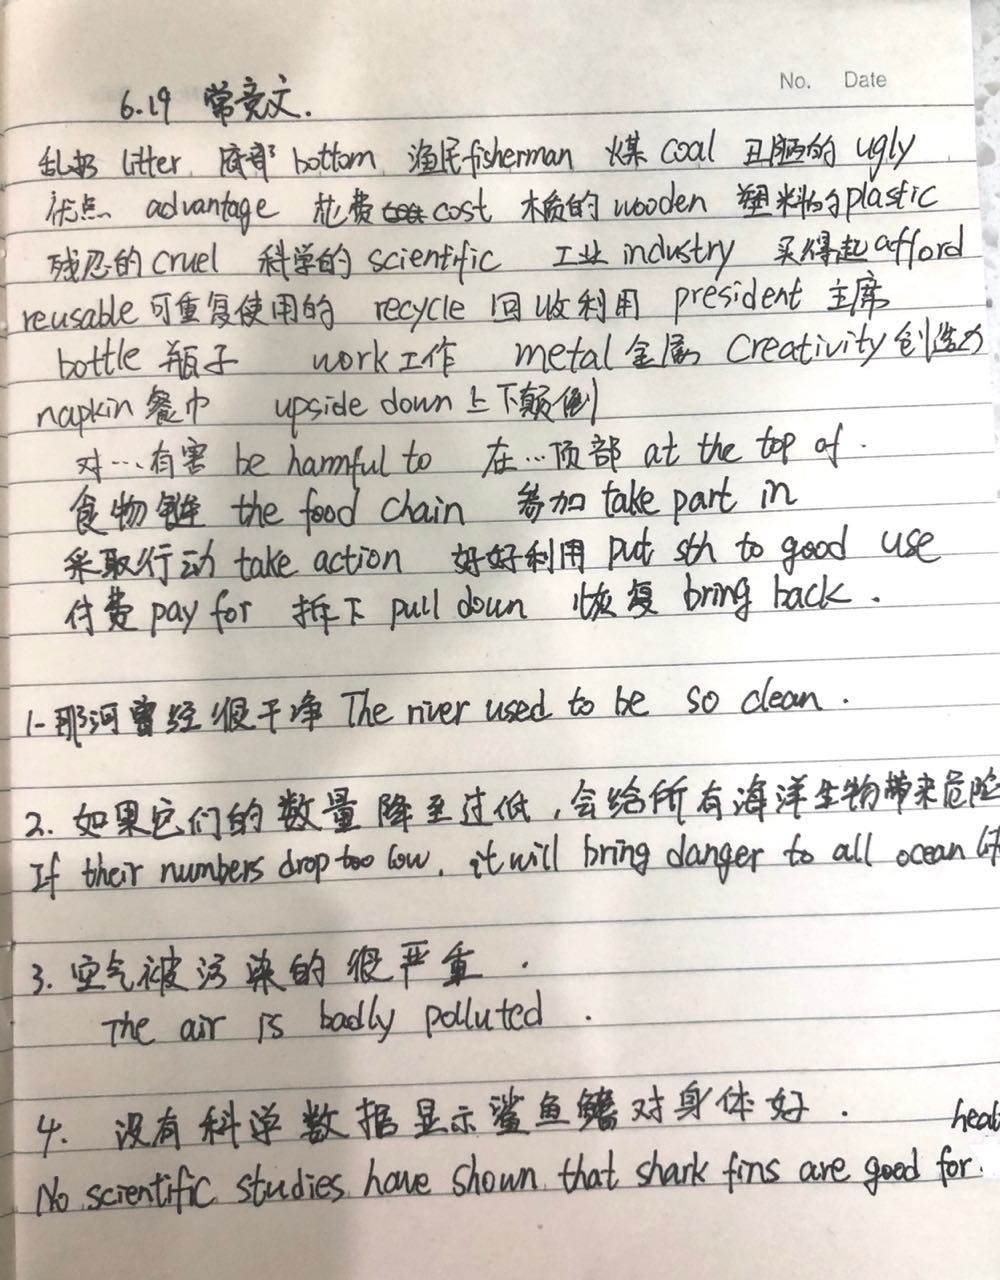 No. Date
6.19 常竞文.
乱扔 litter 底部 bottom 渔民 fisherman 煤 coal 丑陋的 ugly
优点 advantage 花费 cost 木质的 wooden 塑料的 plastic
残忍的 cruel 科学的 scientific 工业 industry 买得起 afford
reusable 可重复使用的 recycle 回收利用 president 主席
bottle 瓶子 work 工作 metal 金属 creativity 创造力
napkin 餐巾 upside down 上下颠倒
对…有害 be harmful to 在…顶部 at the top of.
食物链 the food chain 参加 take part in
采取行动 take action 好好利用 put sth to good use
付费 pay for 拆下 pull down 恢复 bring back.
1- 那河曾经很干净 The river used to be so clean.
2. 如果它们的数量降至过低,会给所有海洋生物带来危险
If their numbers drop too low, it will bring danger to all ocean
3. 空气被污染的很严重.
The air is badly polluted.
4. 没有科学数据显示鲨鱼鳍对身体好.
No scientific studies have shown that shark fins are good for